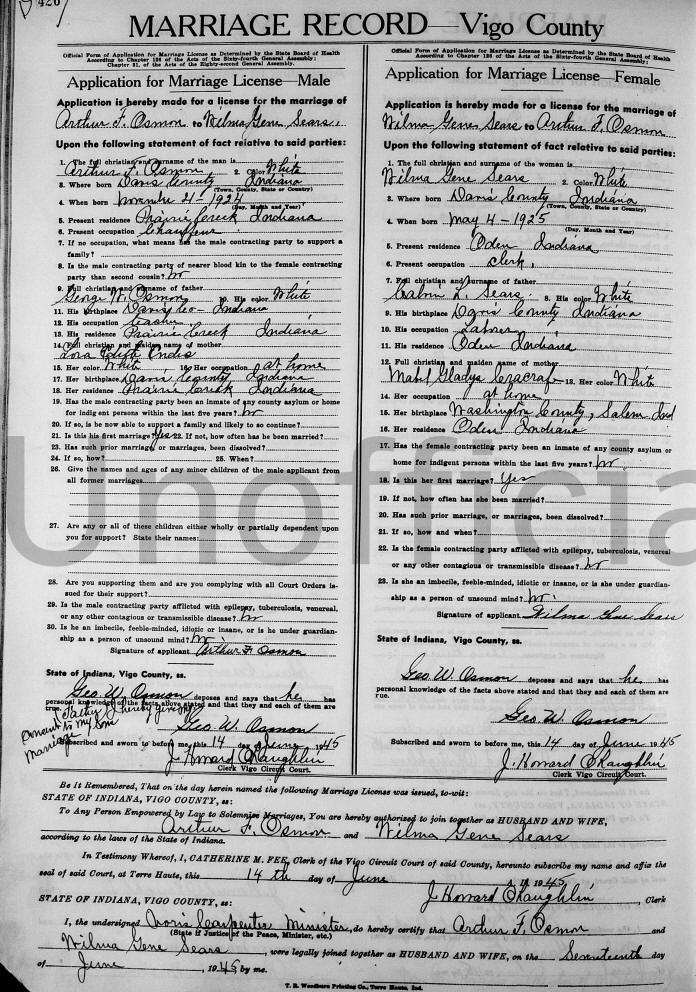 426
MARRIAGE RECORD—Vigo County
Official Form of Application for Marriage License as Determined by the State Board of Health
According to Chapter 126 of the Acts of the Sixty-fourth General Assembly;
Chapter 21, of the Acts of the Eighty-second General Assembly.
Application for Marriage License—Male
Application is hereby made for a license for the marriage of
Arthur F. Osmon to Wilma Gene Sears.
Upon the following statement of fact relative to said parties:
1. The full christian and surname of the man is
Arthur F. Osmon 2. Color White
3. Where born Davis County Indiana
(Town, County, State or Country)
4. When born November 21-1924
(Day, Month and Year)
5. Present residence Prairie Creek Indiana
6. Present occupation Chauffeur
7. If no occupation, what means has the male contracting party to support a
family?
8. Is the male contracting party of nearer blood kin to the female contracting
party than second cousin? No
9. Full christian and surname of father
George W. Osmon 10. His color White
11. His birthplace Davis Co- Indiana
12. His occupation Teacher
13. His residence Prairie Creek Indiana
14. Full christian and maiden name of mother
Lora Edith
15. Her color White 16. Her occupation at home
17. Her birthplace Davis County Indiana
18. Her residence Prairie Creek Indiana
19. Has the male contracting party been an inmate of any county asylum or home
for indigent persons within the last five years? No
20. If so, is he now able to support a family and likely to so continue?
21. Is this his first marriage? Yes 22. If not, how often has he been married?
23. Has such prior marriage, or marriages, been dissolved?
24. If so, how? 25. When?
26. Give the names and ages of any minor children of the male applicant from
all former marriages
27. Are any or all of these children either wholly or partially dependent upon
you for support? State their names:
28. Are you supporting them and are you complying with all Court Orders is-
sued for their support?
29. Is the male contracting party afflicted with epilepsy, tuberculosis, venereal,
or any other contagious or transmissible disease? No
30. Is he an imbecile, feeble-minded, idiotic or insane, or is he under guardian-
ship as a person of unsound mind? No
Signature of applicant Arthur F. Osmon
State of Indiana, Vigo County, ss.
Geo. W. Osmon deposes and says that he has
personal knowledge of the facts above stated and that they and each of them are
true.
I father hereby give my
consent to my son
marriage
Geo. W. Osmon
Subscribed and sworn to before me, this 14 day of June 1945
J. Howard O'Laughlin
Clerk Vigo Circuit Court.
Official Form of Application for Marriage License as Determined by the State Board of Health
According to Chapter 126 of the Acts of the Sixty-fourth General Assembly;
Application for Marriage License—Female
Application is hereby made for a license for the marriage of
Wilma Gene Sears to Arthur F. Osmon
Upon the following statement of fact relative to said parties:
1. The full christian and surname of the woman is
Wilma Gene Sears 2. Color White
3. Where born Davis County Indiana
(Town, County, State or Country)
4. When born May 4-1925
(Day, Month and Year)
5. Present residence Oden Indiana
6. Present occupation Clerk.
7. Full christian and surname of father
Calvin L. Sears 8. His color White
9. His birthplace Davis County Indiana
10. His occupation Laborer
11. His residence Oden Indiana
12. Full christian and maiden name of mother
Mabel Gladys 13. Her color White
14. Her occupation at home
15. Her birthplace Washington County, Salem Ind
16. Her residence Oden Indiana
17. Has the female contracting party been an inmate of any county asylum or
home for indigent persons within the last five years? No
18. Is this her first marriage? Yes
19. If not, how often has she been married?
20. Has such prior marriage, or marriages, been dissolved?
21. If so, how and when?
22. Is the female contracting party afflicted with epilepsy, tuberculosis, venereal
or any other contagious or transmissible disease? No
23. Is she an imbecile, feeble-minded, idiotic or insane, or is she under guardian-
ship as a person of unsound mind? No.
Signature of applicant Wilma Gene Sears
State of Indiana, Vigo County, ss.
Geo. W. Osmon deposes and says that he has
personal knowledge of the facts above stated and that they and each of them are
true.
Geo. W. Osmon
Subscribed and sworn to before me, this 14 day of June 1945
J. Howard O'Laughlin
Clerk Vigo Circuit Court.
Be It Remembered, That on the day herein named the following Marriage License was issued, to-wit:
STATE OF INDIANA, VIGO COUNTY, ss:
To Any Person Empowered by Law to Solemnize Marriages, You are hereby authorized to join together as HUSBAND AND WIFE,
Arthur F. Osmon and Wilma Gene Sears
according to the laws of the State of Indiana.
In Testimony Whereof, I, CATHERINE M. FEE, Clerk of the Vigo Circuit Court of said County, hereunto subscribe my name and affix the
seal of said Court, at Terre Haute, this 14th day of June A. D. 1945
J. Howard O'Laughlin, Clerk
STATE OF INDIANA, VIGO COUNTY, ss:
I, the undersigned Carpenter Minister, do hereby certify that Arthur F. Osmon and
(State if Justice of the Peace, Minister, etc.)
Wilma Gene Sears, were legally joined together as HUSBAND AND WIFE, on the Seventeenth day
of June, 1945 by me.
T. R. Woodburn Printing Co., Terre Haute, Ind.
Unofficia